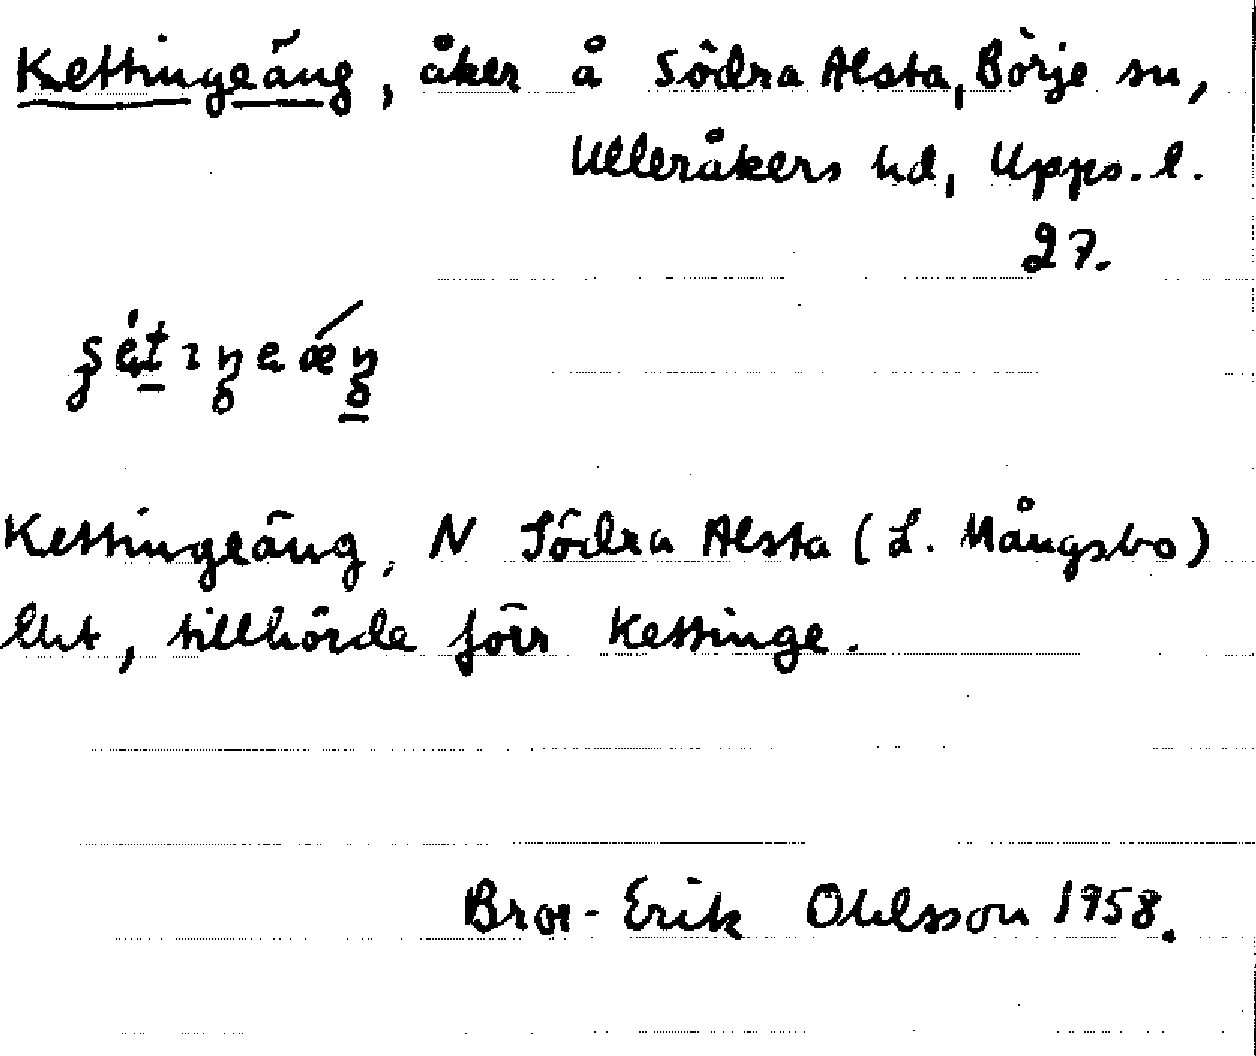 Kettingeäng, åker å Södra Alsta, Börje sn,
Ulleråkers hd, Upps. l.
27.
Kettingeäng, N Södra Alsta (L. Mångsbo)
tillhörde förr Kettinge.
Bror-Erik Ohlsson 1958.